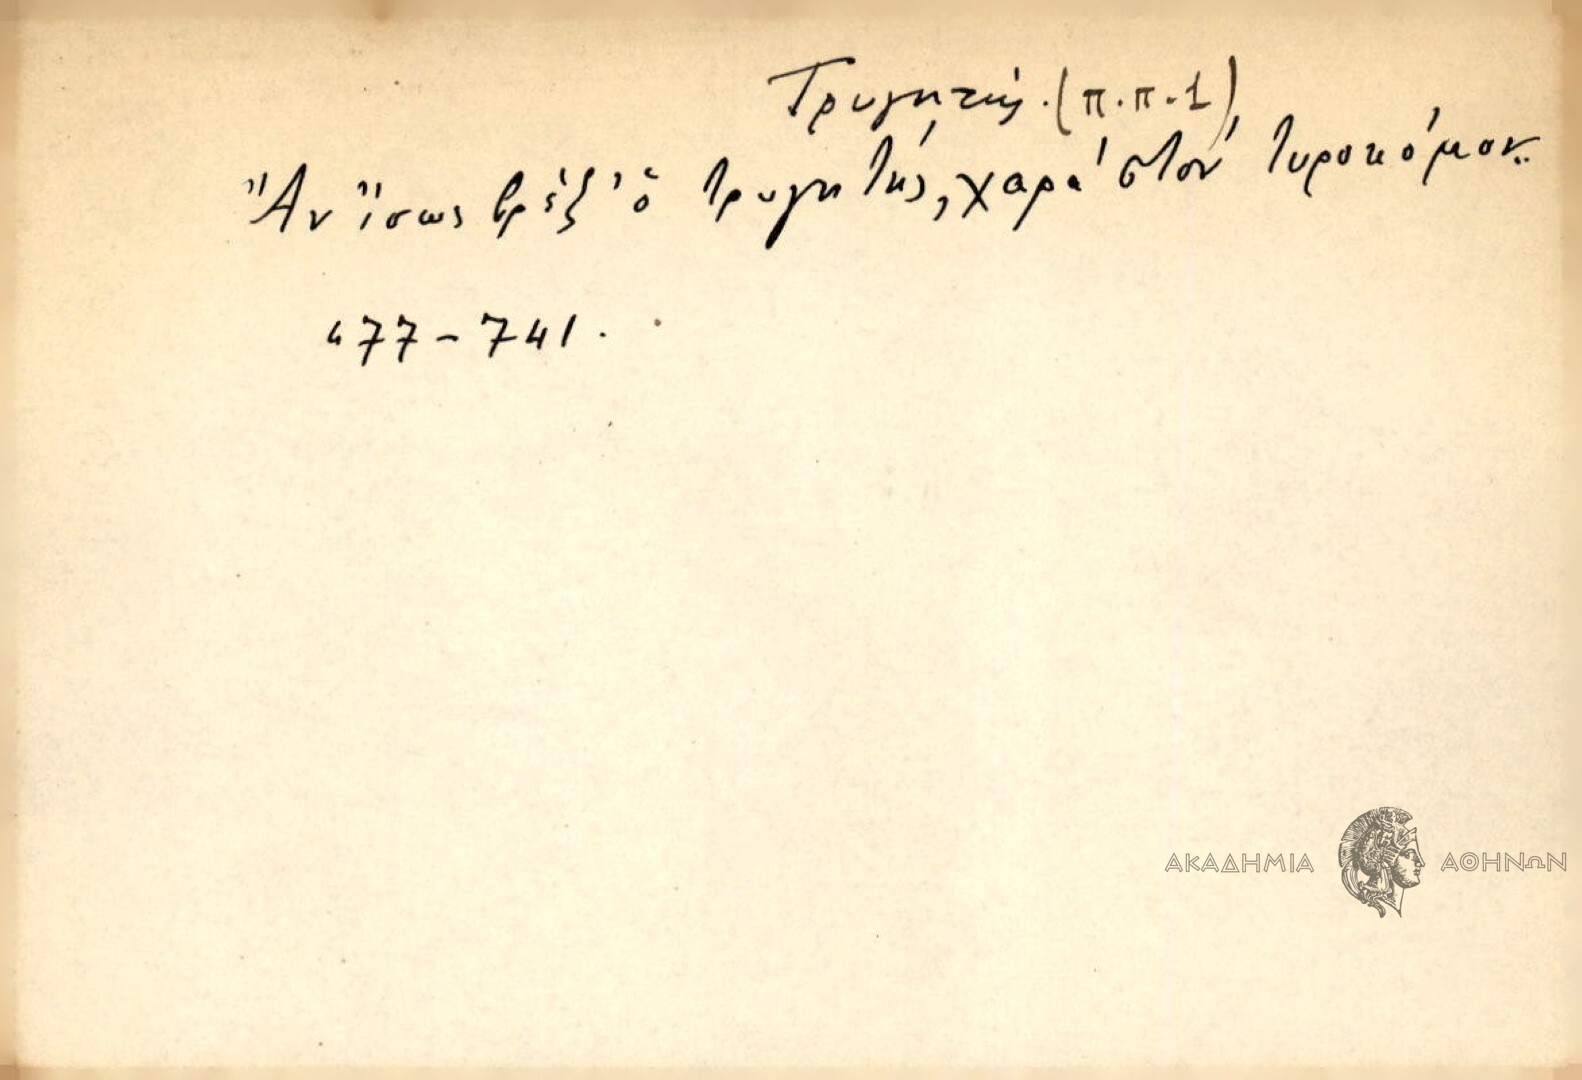 Τρυγητής. (π.π.1)
Ἂν ἴσως βρέξ' ὁ τρυγητής, χαρά στόν τυροκόμον.
477-741.
ΑΚΑΔΗΜΙΑ ΑΘΗΝΩΝ